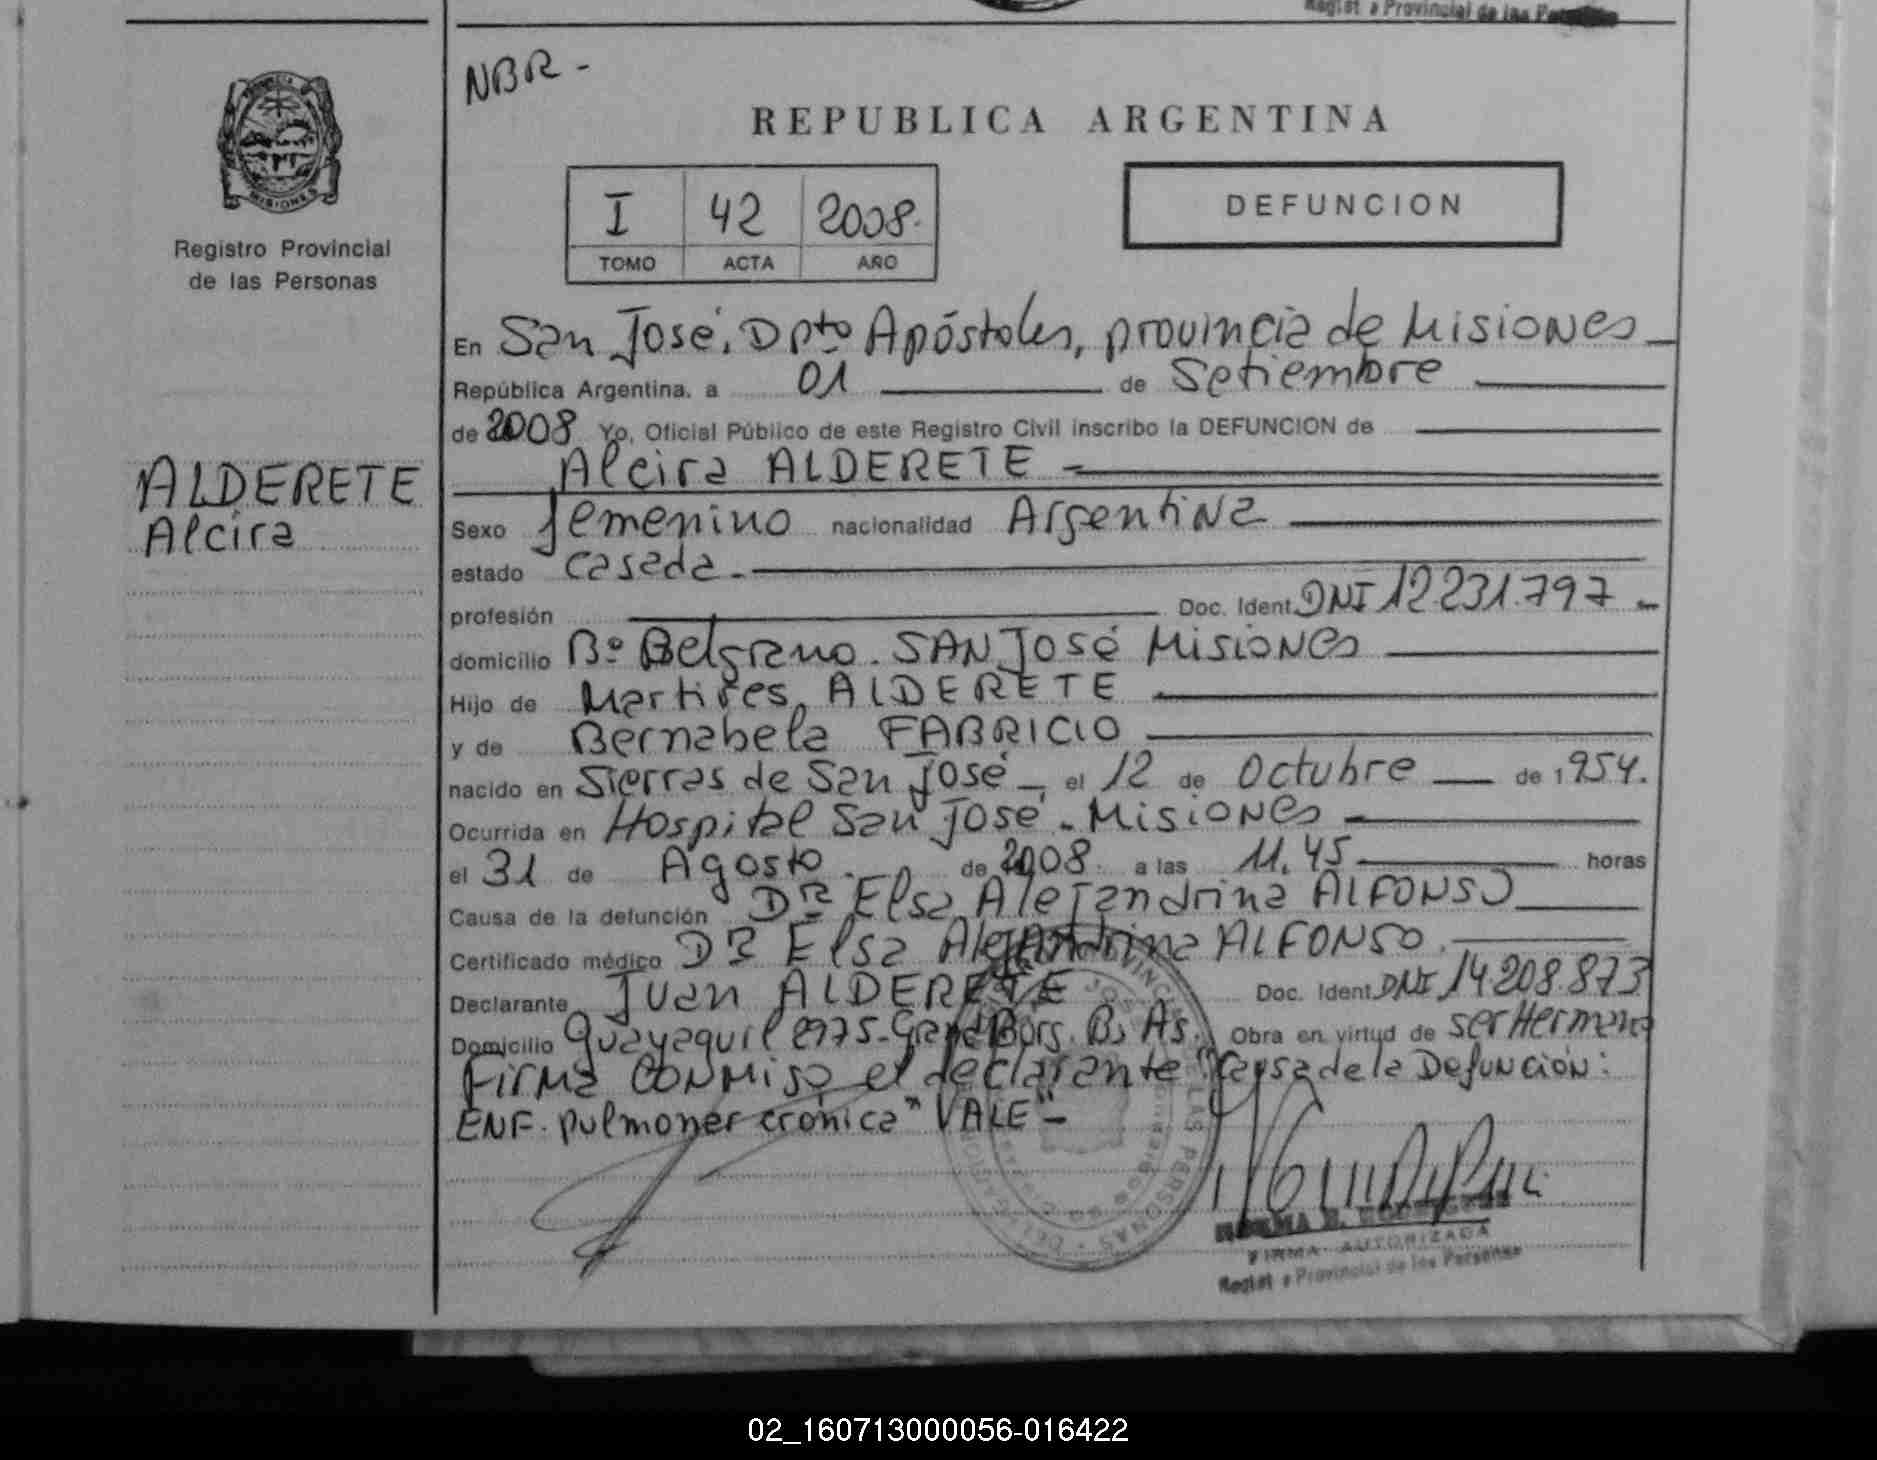 Registro Provincial de las Personas
NBR -
REPUBLICA ARGENTINA
I 42 2008.
TOMO ACTA AÑO
DEFUNCION
MISIONES
Registro Provincial
de las Personas
ALDERETE
Alcira
En San José, Dpto Apóstoles, provincia de Misiones
República Argentina, a 01 de Setiembre
de 2008 Yo, Oficial Público de este Registro Civil inscribo la DEFUNCION de
Alcira ALDERETE
Sexo femenino nacionalidad Argentina
estado casada.
profesión Doc. Ident. DNI 12231.797
domicilio Bº Belgrano. SAN José Misiones
Hijo de Martires ALDERETE
y de Bernabela FABRICIO
nacido en Sierras de San José el 12 de Octubre de 1954.
Ocurrida en Hospital San José. Misiones
el 31 de Agosto. de 2008. a las 11.45 horas
Causa de la defunción Dra Elsa Alejandrina ALFONSO
Certificado médico Dra Elsa Alejandrina ALFONSO.
Declarante Juan ALDERETE Doc. Ident. DNI 14.208.873
Domicilio Guayaquil 2975-Grand Bourg. Bs As. Obra en virtud de ser Hermano
Firma conmigo el declarante "Causa de la Defunción:
ENF. pulmonar crónica" VALE"-
FIRMA AUTORIZADA
Registro Provincial de las Personas
02_160713000056-016422